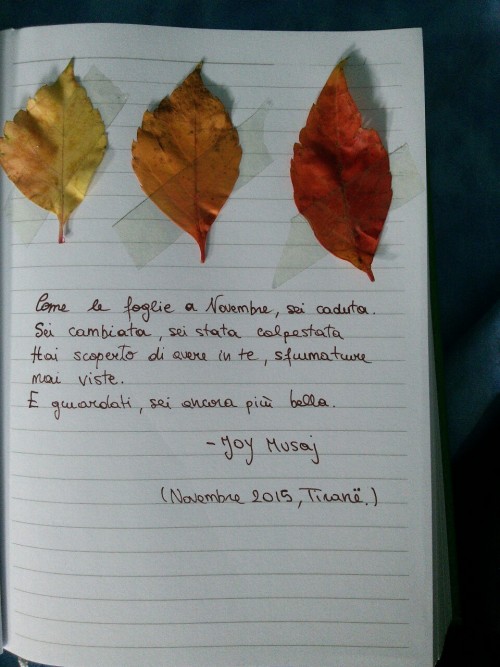 Come le foglie a Novembre, sei caduta.
Sei cambiata, sei stata calpestata
Hai scoperto di avere in te, sfumature
mai viste.
E guardati, sei ancora più bella.
- Joy Musaj
(Novembre 2015, Tiranë.)